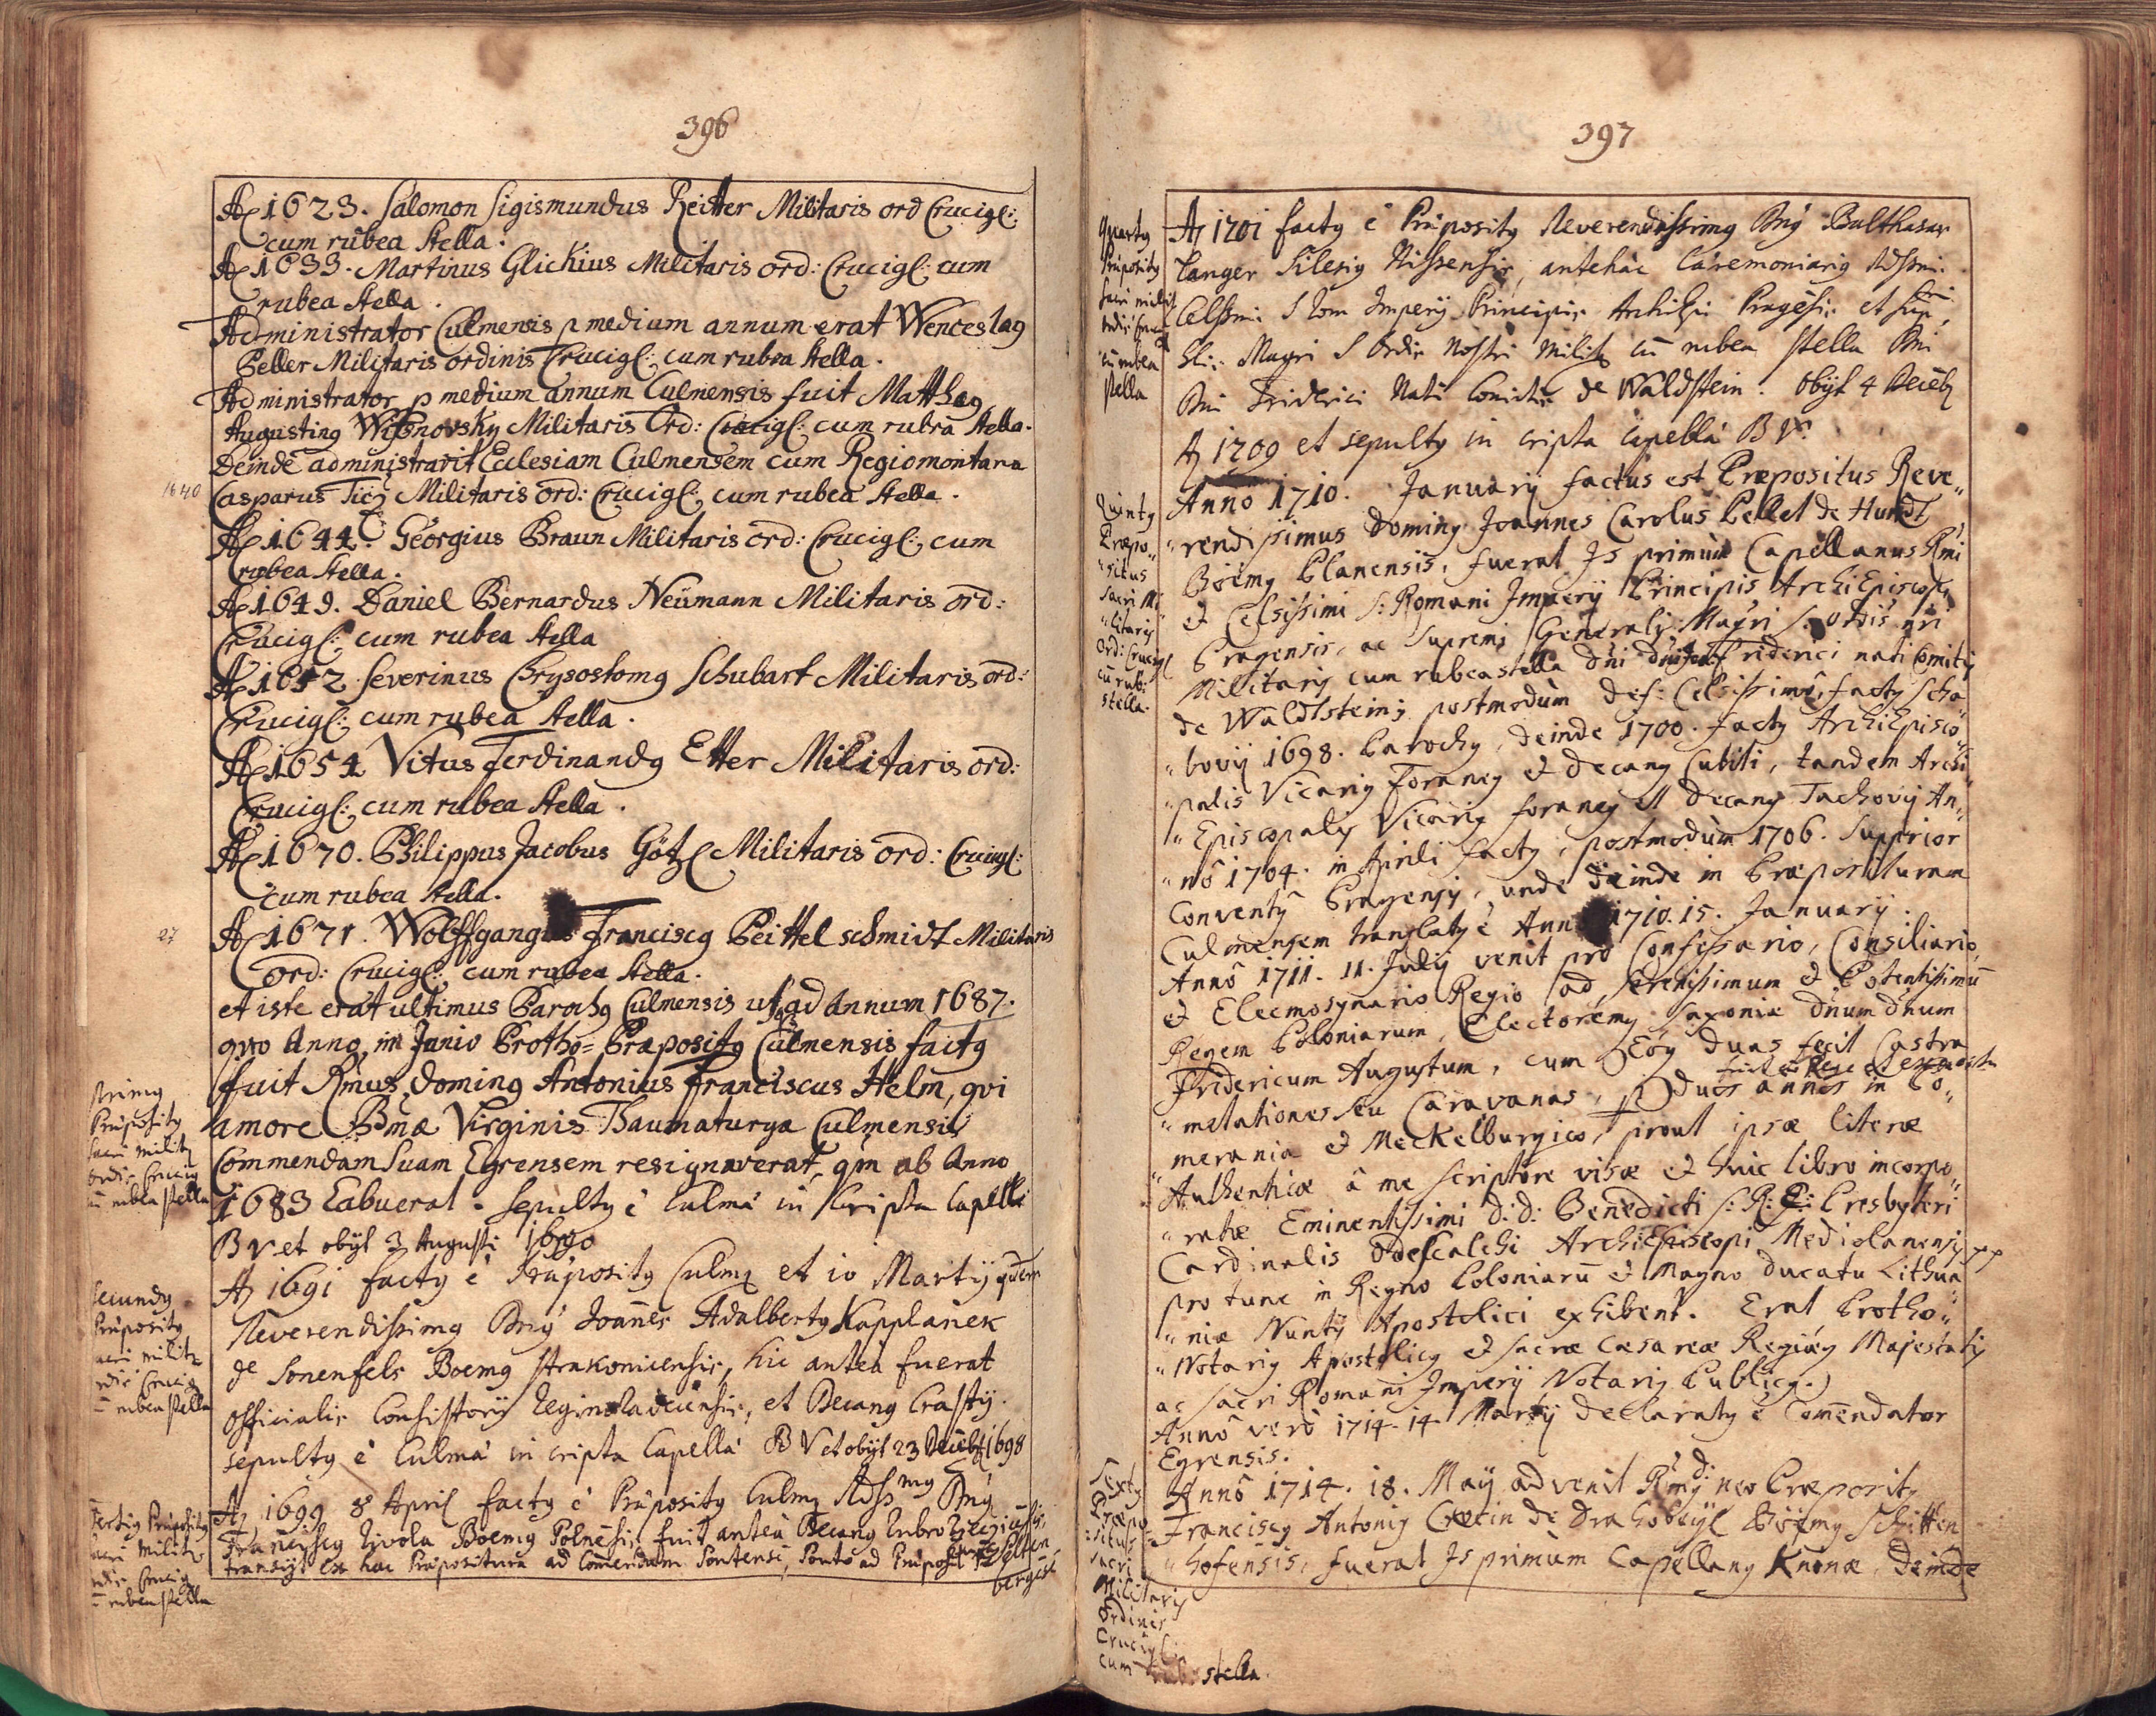 396
Aõ 1623. Salomon Sigismundus Reitter Militaris ord Crucigl:
cum rubea Stella.
Aõ 1633. Martinus Glichius Militaris ord: Crucigl: cum
rubea stella.
Administrator Culmensis p medium annum erat Wenceslaꝯ
Peller Militaris ordinis Crucigl: cum rubea stella.
Administrator p medium annum Culmensis fuit Matthæꝯ
Augustinꝯ Wißnovsky Militaris Ord: Crucigl: cum rubra stella.
Deinde administravit Ecclesiam Culmensem cum Regiomontana
1640
Casparus Militaris ord: Crucigl: cum rubea Stella.
Aõ 1644. Georgius Braun Militaris ord: Crucigl: cum
rubea stella.
Aõ 1649. Daniel Bernardus Neümann Militaris ord:
Crucigl: cum rubea stella
Aõ 1652 Severinus Chrysostomꝯ Schubart Militaris ord:
Crucigl: cum rubea stella.
Aõ 1654 Vitus Ferdinandꝯ Etter Militaris ord:
Crucigl: cum rubea stella.
Aõ 1670. Philippus Jacobus Götzl Militaris ord: Crucigl:
cum rubea stella.
27
Aõ 1671. Wolffgangus Franciscꝯ Peittelschmidt Militaris
ord: Crucigl: cum rubea stella.
et iste erat ultimus Parochꝯ Culmensis usq ad Annum 1687.
quo Anno, in Junio Protho=Præpositꝯ Culmensis factꝯ
fuit Rmus Dominꝯ Antonius Franciscus Helm, qvi
amore Bmæ Virginis Thaumaturgæ Culmensis
Commendam suam Egrensem resignaverat, qm ab Anno
1683 habuerat. sepultꝯ ë Culmæ in Cripta Capellæ
B V et obijt 3 Augusti 1690
primꝯ
Præpositꝯ
sacri milit
ordis Crucig
cū rubea stella
Aõ 1691 factꝯ ë Præpositꝯ Culmę et 10 Martij
Reverendissimꝯ Dnꝯ Joannes Adalbertꝯ Kapplanek
de Sonenfels Boemꝯ strakonicensis, hic antea fuerat
officialis Consistorij, et Decanꝯ
sepultꝯ ë Culmæ in cripta Capellæ B V et obijt 23 Decēb 1698
secundꝯ
Præpositꝯ
sacri milit
ordis Crucig
cū rubea stella
Aõ 1699 8 April factꝯ ë Præpositꝯ Culmę Rdssmꝯ Dnꝯ
Franciscꝯ Boemꝯ Polnēsis, fuit antea Decanꝯ
transijt ex hac Præpositura ad Comendam Pontensē, Ponto ad Præposit Pöltenbergēsē
tertiꝯ Præpositꝯ
sacri Milit
ordis Crucig
cū rubea stella
397
Aõ 1701 factꝯ ë Præpositꝯ Reverendissimꝯ Dnꝯ Balthasar
Langer Silesiꝯ Nissensis, antehac Cæremoniariꝯ Rdssmi
Celssmi S Rom Imperij Principis Archiepi Pragēsis et
Magri S Ordis Nostri milit cū rubea stella Dni
Dni Friderici Nati Comitis de Waldstein. obijt 4 Decēb
Aõ 1709 et sepultꝯ in cripta Capellæ B V.
quartꝯ
Præpositꝯ
sacri milit
ordis Crucig
cū rubea
stella
Annô 1710. Januarij factus est Præpositus Reve„
„rendissimus Dominꝯ Joannes Carolus Pellet de Hundt,
Böemꝯ Planensis, fuerat Is primùm Capellanus Rmi
et Celsissimi S: Romani Imperij Principis ArchiEpiscopi
Pragensis, ac Supremi Generalis Magri S: Ordis nri
Militaris cum rubea stella Dni Dni Friderici nati Comitis
de Waldtstein; postmodùm def: Celsissimi, factꝯ Scha„
„bovij 1698. Parochꝯ, deinde 1700. factꝯ ArchiEpisco„
„palis Vicariꝯ Foraneꝯ et Decanꝯ Cubiti, tandem Archi„
„Episcopalis Vicariꝯ foraneꝯ et Decanꝯ Tachovij An„
„nô 1704. in Aprili factꝯ, postmodùm 1706. Supprior
Conventꝯ Pragensis, unde deinde in Præposituram
Culmensem translatꝯ ë Annô 1710. 15. Januarij.
Annô 1711. 11. Julij venit pro Confessario, Consiliario,
et Eleemosynario Regio ad Serenissimum et Potentissimū
Regem Poloniarum, Electoremq Saxoniæ Dnum Dnum
Fridericum Augustum, cum Eoq duas fecit Castra„
„metationes seu Caravanas, p duos annos in Po„
merania et Meckelburgico, prout ipsæ literæ
Authenticæ â me scriptore visæ et huic libro incorpo„
„ratæ Eminentissimi D: D: Benedicti S: R: E: Presbyteri
Cardinalis Odescalchi ArchiEpiscopi Mediolanensis pp
pro tunc in Regno Poloniarū et Magno Ducatu Lithua„
„niæ Nuntij Apostolici exhibent. Erat Protho„
„Notariꝯ Apostolicꝯ et Sacræ Cæsareæ Regiæq Majestatis
ac Sacri Romani Imperij Notariꝯ Publicꝯ.
Annô verò 1714. 14. Martij declaratꝯ ë Comendator
Egrensis.
Quintꝯ
Præpo„
„situs
Sacri Mi„
„litaris
Ord: Crucigl
cū rub:
stella.
Annô 1714. 18. Maij advenit Rmꝯ D: neo Præpositꝯ
Franciscꝯ Antoniꝯ de Drahobeyl Böemꝯ Schütten„
„hofensis, fuerat Is primum Capellanꝯ Knonæ, deinde
Sextꝯ
Præpo=
=situs
sacri
Militaris
Ordinis
Crucigl:
cum stella.